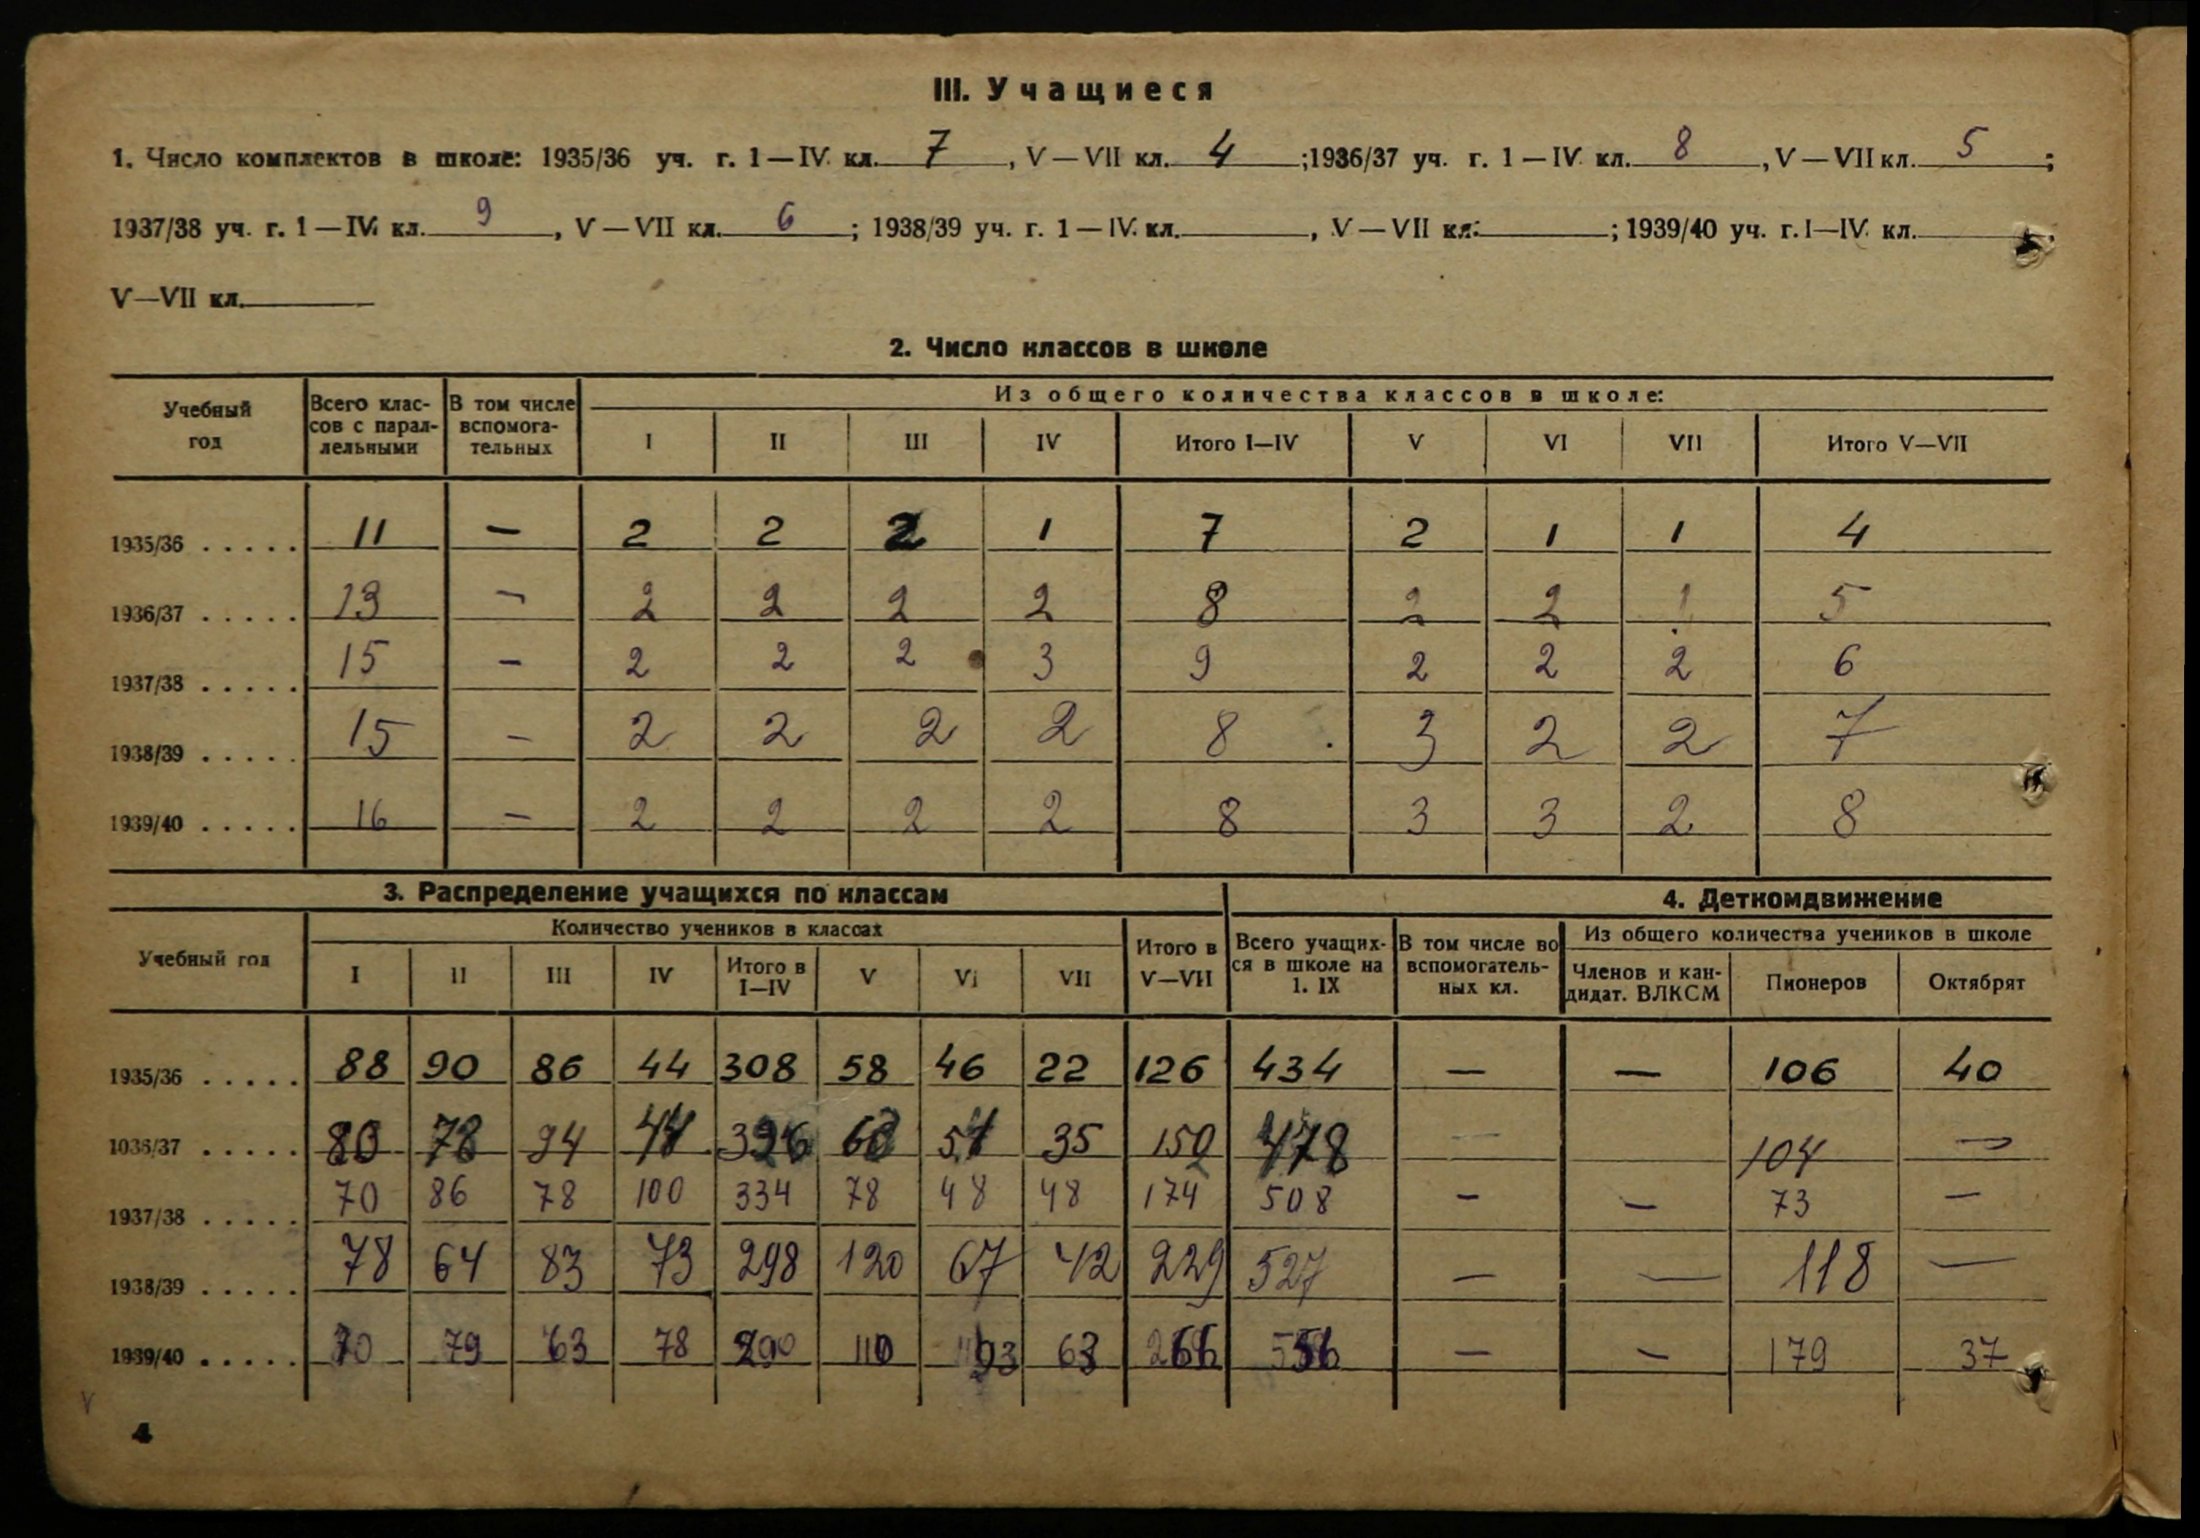 III. Учащиеся
1. Число комплектов в школе: 1935/36 уч. г. 1—IV кл. 7, V—VII кл. 4; 1936/37 уч. г. 1—IV кл. 8, V—VII кл. 5;
1937/38 уч. г. 1—IV кл. 9, V—VII кл. 6; 1938/39 уч. г. 1—IV кл. , V—VII кл. ; 1939/40 уч. г. I—IV кл. ,
V—VII кл.
2. Число классов в школе
Учебный год | Всего классов с параллельными | В том числе вспомогательных | Из общего количества классов в школе:
I | II | III | IV | Итого I—IV | V | VI | VII | Итого V—VII
1935/36 ..... 11 — 2 2 2 1 7 2 1 1 4
1936/37 ..... 13 — 2 2 2 2 8 2 2 1 5
1937/38 ..... 15 — 2 2 2 3 9 2 2 2 6
1938/39 ..... 15 — 2 2 2 2 8 3 2 2 7
1939/40 ..... 16 — 2 2 2 2 8 3 3 2 8
3. Распределение учащихся по классам | 4. Деткомдвижение
Учебный год | Количество учеников в классах | Итого в V—VII | Всего учащихся в школе на 1. IX | В том числе во вспомогательных кл. | Из общего количества учеников в школе
I | II | III | IV | Итого в I—IV | V | VI | VII | Членов и кандидат. ВЛКСМ | Пионеров | Октябрят
1935/36 ..... 88 90 86 44 308 58 46 22 126 434 — — 106 40
1036/37 ..... 78 94 35 150 478 — 104 —
1937/38 ..... 70 86 78 100 334 78 48 48 174 508 — — 73 —
1938/39 ..... 78 64 83 73 298 120 67 42 229 527 — — 118 —
1939/40 ..... 70 79 63 78 290 110 93 63 266 556 — — 179 37
4